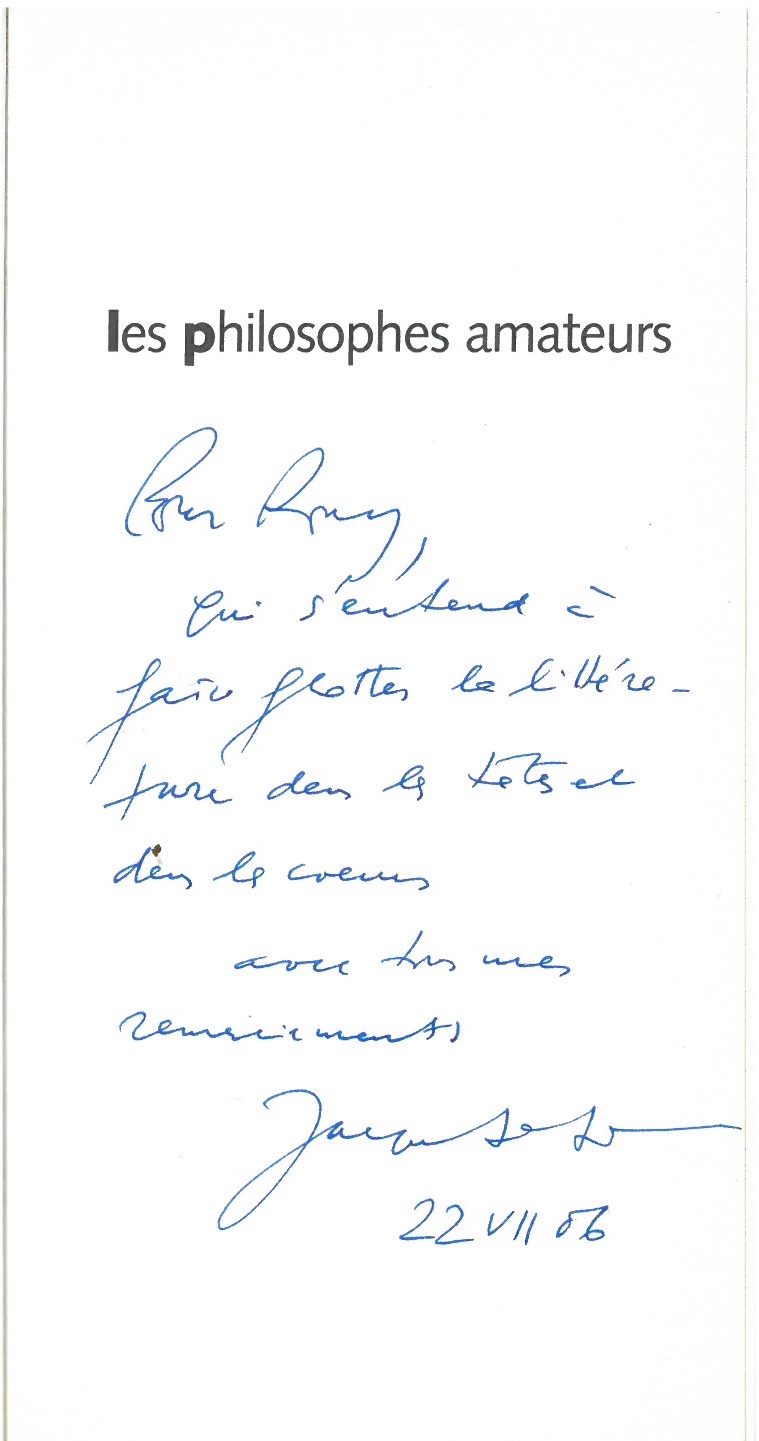 les philosophes amateurs
Pour Romy,
qui s'entend à
faire flotter la littéra-
ture dans les têtes et
dans les coeurs
avec tous mes
remerciements
Jacques
22 VII 06